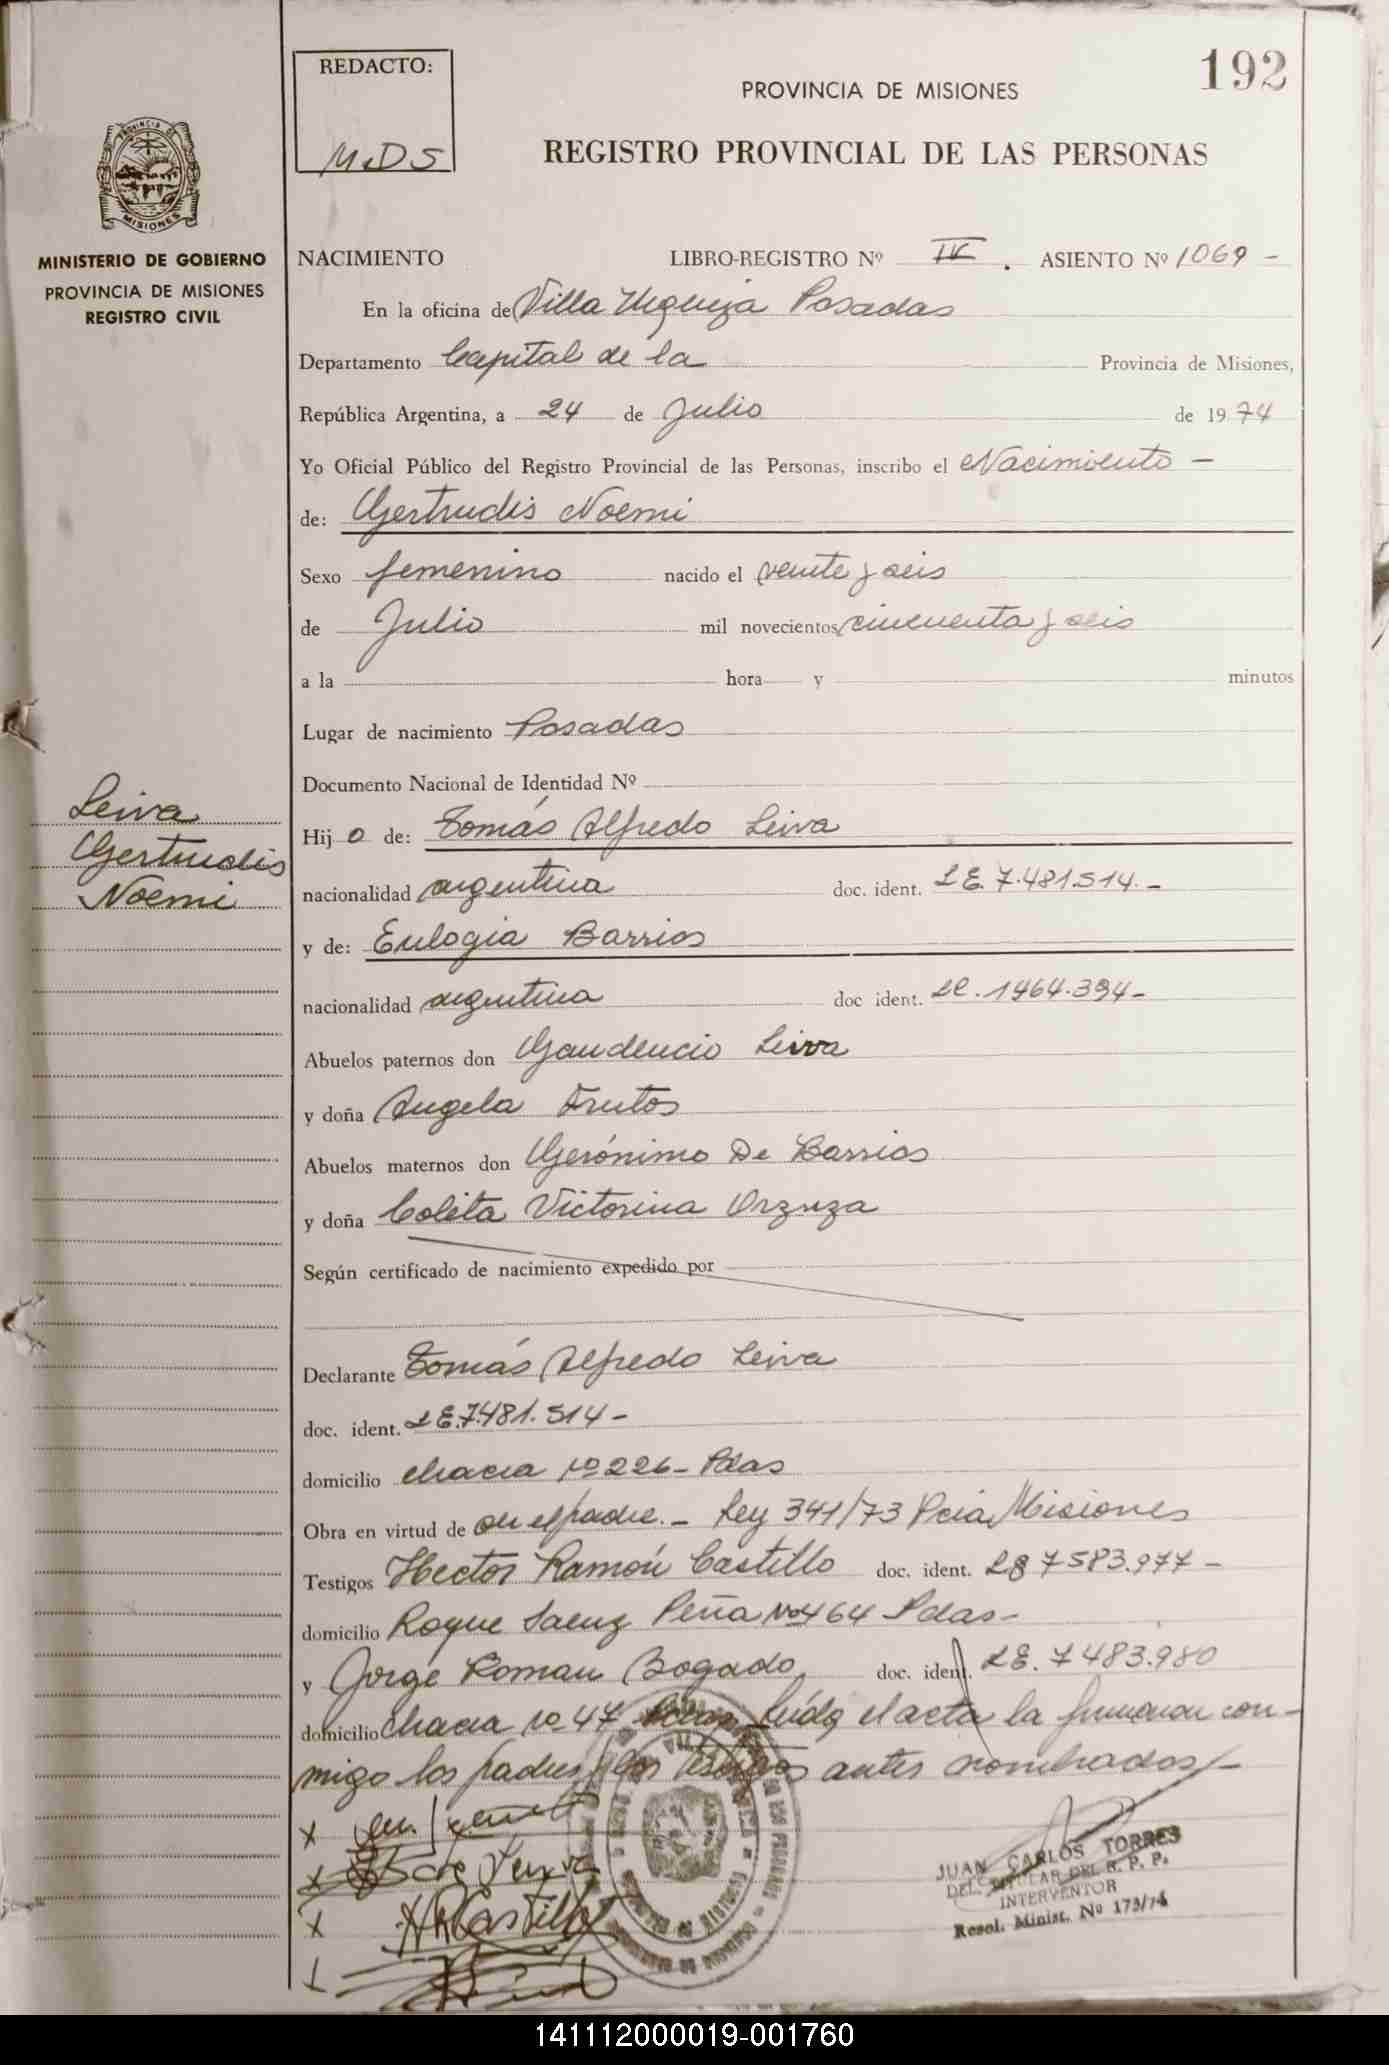 192
REDACTO:
M.D S
PROVINCIA DE MISIONES
REGISTRO PROVINCIAL DE LAS PERSONAS
PROVINCIA DE
MISIONES
MINISTERIO DE GOBIERNO
PROVINCIA DE MISIONES
REGISTRO CIVIL
NACIMIENTO LIBRO-REGISTRO Nº IV . ASIENTO Nº 1069 -
En la oficina de Villa Urquiza Posadas
Departamento Capital de la Provincia de Misiones,
República Argentina, a 24 de Julio de 1974
Yo Oficial Público del Registro Provincial de las Personas, inscribo el Nacimiento -
de: Gertrudis Noemi
Sexo femenino nacido el veinte y seis
de Julio mil novecientos cincuenta y seis
a la hora y minutos
Lugar de nacimiento Posadas
Documento Nacional de Identidad Nº
Leiva
Gertrudis
Noemi
Hij o de: Tomás Alfredo Leiva
nacionalidad argentina doc. ident. LE. 7.481.514.-
y de: Eulogia Barrios
nacionalidad argentina doc ident. LC. 1464.394-
Abuelos paternos don Gaudencio Leiva
y doña Angela Frutos
Abuelos maternos don Gerónimo De Barrios
y doña Coleta Victorina Orzuza
Según certificado de nacimiento expedido por
Declarante Tomás Alfredo Leiva
doc. ident. LE.7.481.514-
domicilio chacra nº 226- Pdas
Obra en virtud de ser el padre.- Ley 341/73 Pcia Misiones
Testigos Hector Ramón Castillo doc. ident. LE 7583.977-
domicilio Roque Saenz Peña Nº 464 Pdas-
y Jorge Roman Bogado, doc. ident. LE. 7483.980
domicilio chacra nº 47 Pdas Leída el acta la firman con-
migo los padres y los testigos antes nombrados/-
X
X Leiva
X HRCastillo
JUAN CARLOS TORRES
DEL. TITULAR DEL R. P. P.
INTERVENTOR
Resol. Minist. Nº 173/74
141112000019-001760